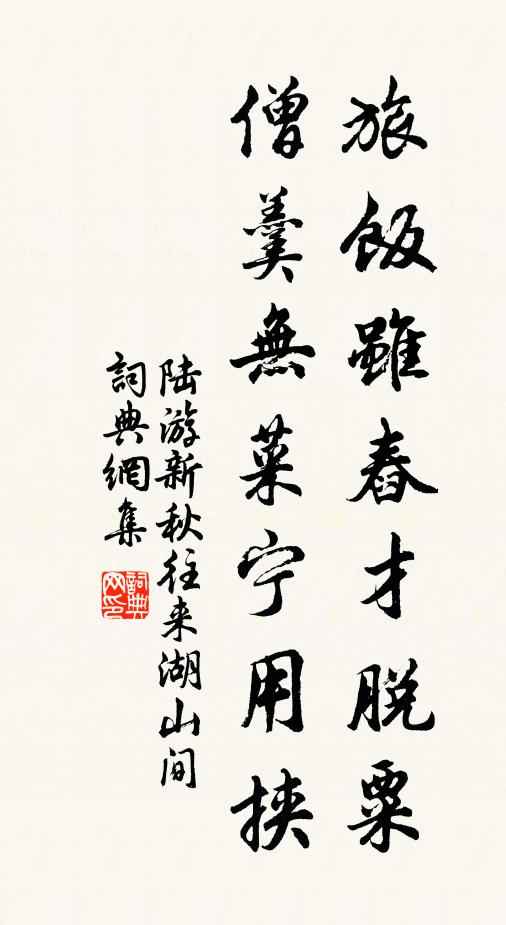 旅飯雖舂才脫粟
僧羹無菜宁用挾
陆游新秋往来湖山间
詞典網集
詞典网印